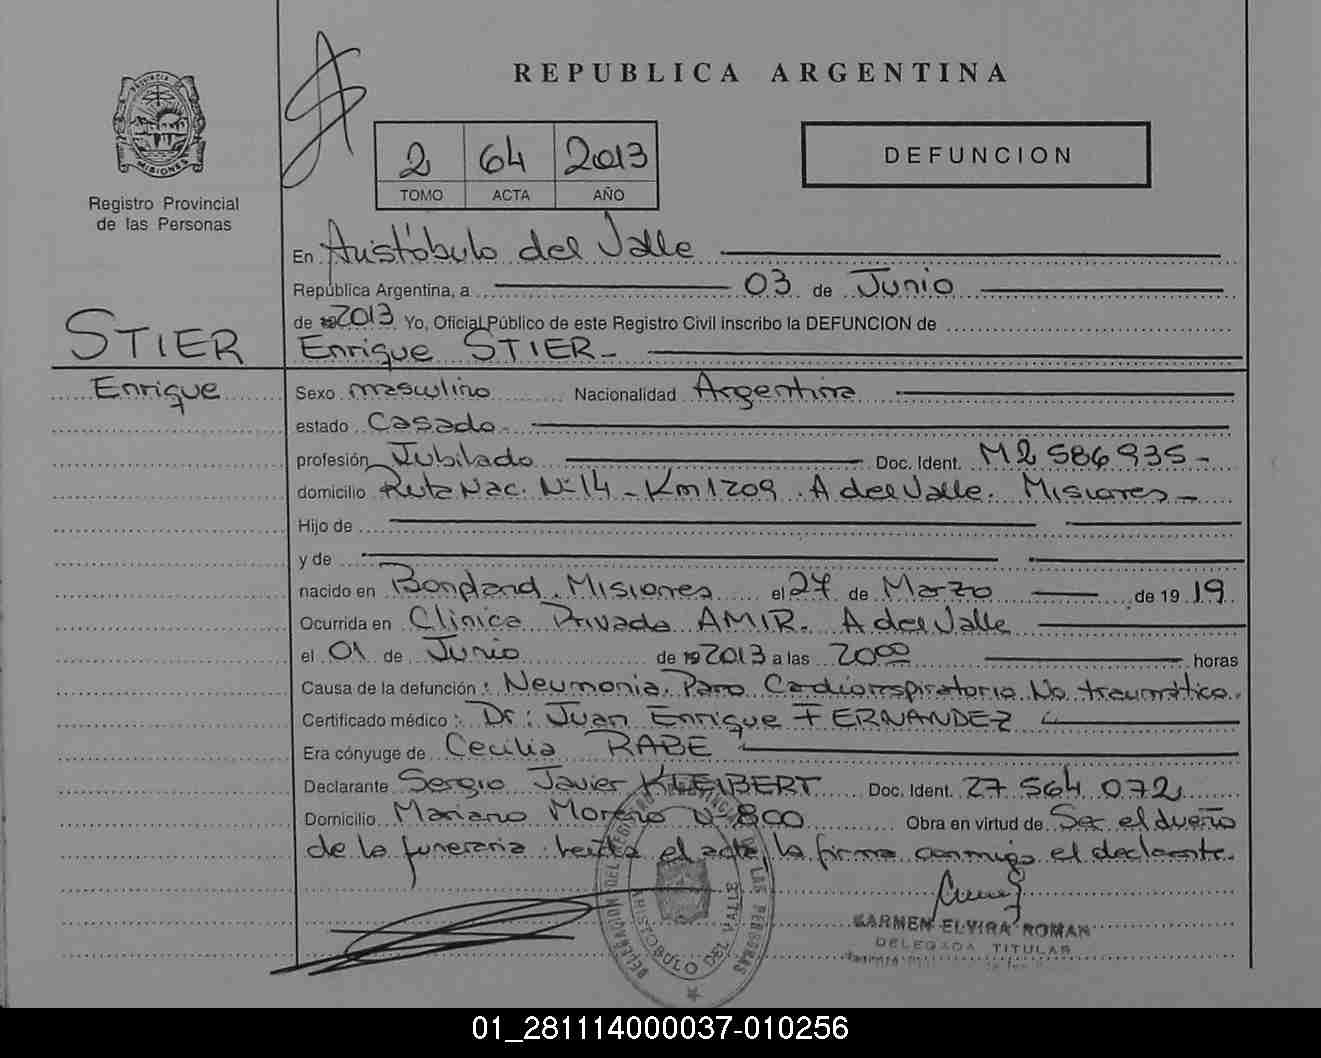 REPUBLICA ARGENTINA
PROVINCIA DE
MISIONES
Registro Provincial
de las Personas
2 64 2013
TOMO ACTA AÑO
DEFUNCION
En Aristóbulo del Valle
República Argentina, a 03 de Junio
de 2013 Yo, Oficial Público de este Registro Civil inscribo la DEFUNCION de
STIER
Enrique STIER
Enrique
Sexo masculino Nacionalidad Argentina
estado Casado
profesión Jubilado Doc. Ident. M2 586 935-
domicilio Ruta Nac. Nº 14 - Km 1209 . A del Valle. Misiones -
Hijo de
y de
nacido en Bonpland. Misiones el 27 de Marzo de 19 19
Ocurrida en Clinica Privada AMIR. A del Valle
el 01 de Junio de 2013 a las 20 00 horas
Causa de la defunción : Neumonia. Paro Cardiorrespiratorio No traumático.
Certificado médico : Dr: Juan Enrique FERNANDEZ
Era cónyuge de Cecilia RABE
Declarante Sergio Javier KLEIBERT Doc. Ident. 27 564 072
Domicilio Mariano Moreno Nº 800 Obra en virtud de Ser el dueño
de la funeraria leída el acta, la firma conmigo el declarante.
DELEGACION DEL REGISTRO PROVINCIAL DE LAS PERSONAS
ARISTOBULO DEL VALLE
CARMEN ELVIRA ROMAN
DELEGADA TITULAR
01_281114000037-010256